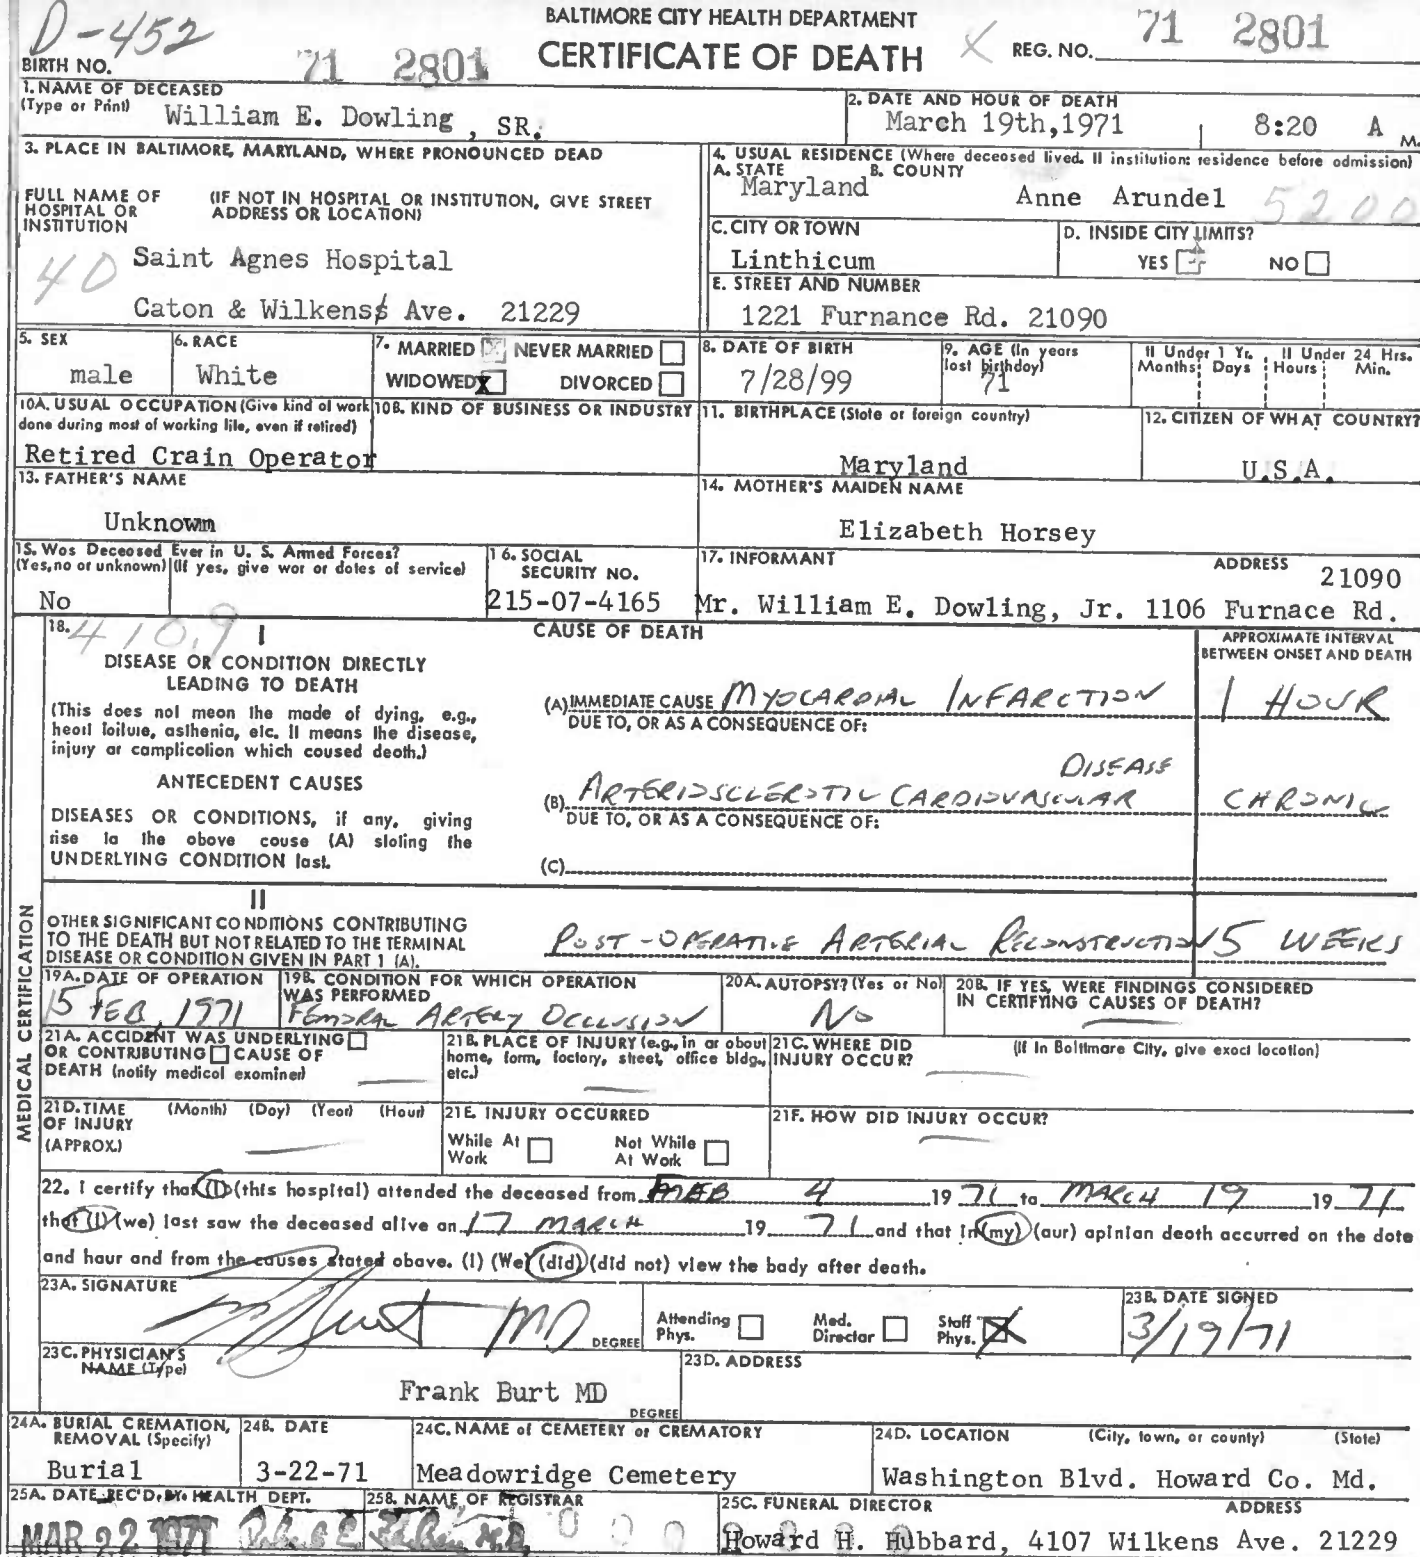 D-452
BALTIMORE CITY HEALTH DEPARTMENT
CERTIFICATE OF DEATH
X REG. NO. 71 2801
BIRTH NO. 71 2801
1. NAME OF DECEASED
(Type or Print) William E. Dowling, SR.
2. DATE AND HOUR OF DEATH
March 19th,1971 8:20 A M.
3. PLACE IN BALTIMORE, MARYLAND, WHERE PRONOUNCED DEAD
FULL NAME OF HOSPITAL OR INSTITUTION
(IF NOT IN HOSPITAL OR INSTITUTION, GIVE STREET ADDRESS OR LOCATION)
40 Saint Agnes Hospital
Caton & Wilkens Ave. 21229
4. USUAL RESIDENCE (Where deceased lived. If institution: residence before admission)
A. STATE B. COUNTY
Maryland Anne Arundel 5200
C. CITY OR TOWN
Linthicum
D. INSIDE CITY LIMITS?
YES NO
E. STREET AND NUMBER
1221 Furnance Rd. 21090
5. SEX
male
6. RACE
White
7. MARRIED NEVER MARRIED
WIDOWED X DIVORCED
8. DATE OF BIRTH
7/28/99
9. AGE (In years last birthday)
71
If Under 1 Yr. If Under 24 Hrs.
Months Days Hours Min.
10A. USUAL OCCUPATION (Give kind of work done during most of working life, even if retired)
Retired Crain Operator
10B. KIND OF BUSINESS OR INDUSTRY
11. BIRTHPLACE (State or foreign country)
Maryland
12. CITIZEN OF WHAT COUNTRY?
U.S.A.
13. FATHER'S NAME
Unknown
14. MOTHER'S MAIDEN NAME
Elizabeth Horsey
15. Was Deceased Ever in U. S. Armed Forces?
(Yes, no or unknown) (If yes, give war or dates of service)
No
16. SOCIAL SECURITY NO.
215-07-4165
17. INFORMANT ADDRESS
21090
Mr. William E. Dowling, Jr. 1106 Furnace Rd.
MEDICAL CERTIFICATION
18. 410.9 I
CAUSE OF DEATH
APPROXIMATE INTERVAL BETWEEN ONSET AND DEATH
DISEASE OR CONDITION DIRECTLY LEADING TO DEATH
(This does not mean the mode of dying, e.g., heart failure, asthenia, etc. It means the disease, injury or complication which caused death.)
(A) IMMEDIATE CAUSE MYOCARDIAL INFARCTION 1 HOUR
DUE TO, OR AS A CONSEQUENCE OF:
ANTECEDENT CAUSES
DISEASES OR CONDITIONS, if any, giving rise to the above cause (A) stating the UNDERLYING CONDITION last.
DISEASE
(B) ARTERIOSCLEROTIC CARDIOVASCULAR CHRONIC
DUE TO, OR AS A CONSEQUENCE OF:
(C)
II
OTHER SIGNIFICANT CONDITIONS CONTRIBUTING TO THE DEATH BUT NOT RELATED TO THE TERMINAL DISEASE OR CONDITION GIVEN IN PART 1 (A).
POST-OPERATIVE ARTERIAL RECONSTRUCTION 5 WEEKS
19A. DATE OF OPERATION
15 FEB, 1971
19B. CONDITION FOR WHICH OPERATION WAS PERFORMED
FEMORAL ARTERY OCCLUSION
20A. AUTOPSY? (Yes or No)
NO
20B. IF YES, WERE FINDINGS CONSIDERED IN CERTIFYING CAUSES OF DEATH?
21A. ACCIDENT WAS UNDERLYING OR CONTRIBUTING CAUSE OF DEATH (notify medical examiner)
21B. PLACE OF INJURY (e.g., in or about home, farm, factory, street, office bldg., etc.)
21C. WHERE DID INJURY OCCUR?
(If in Baltimore City, give exact location)
21D. TIME OF INJURY (APPROX.)
(Month) (Day) (Year) (Hour)
21E. INJURY OCCURRED
While At Work Not While At Work
21F. HOW DID INJURY OCCUR?
22. I certify that (I) (this hospital) attended the deceased from FEB 4 1971 to MARCH 19 1971
that (I) (we) last saw the deceased alive on 17 MARCH 1971 and that in (my) (our) opinion death occurred on the date
and hour and from the causes stated above. (I) (We) (did) (did not) view the body after death.
23A. SIGNATURE
Burt MD DEGREE
Attending Phys. Med. Director Staff Phys. X
23B. DATE SIGNED
3/19/71
23C. PHYSICIAN'S NAME (Type)
Frank Burt MD
DEGREE
23D. ADDRESS
24A. BURIAL CREMATION, REMOVAL (Specify)
Burial
24B. DATE
3-22-71
24C. NAME of CEMETERY or CREMATORY
Meadowridge Cemetery
24D. LOCATION (City, town, or county) (State)
Washington Blvd. Howard Co. Md.
25A. DATE REC'D. BY. HEALTH DEPT.
MAR 22 1971
25B. NAME OF REGISTRAR
25C. FUNERAL DIRECTOR ADDRESS
Howard H. Hubbard, 4107 Wilkens Ave. 21229